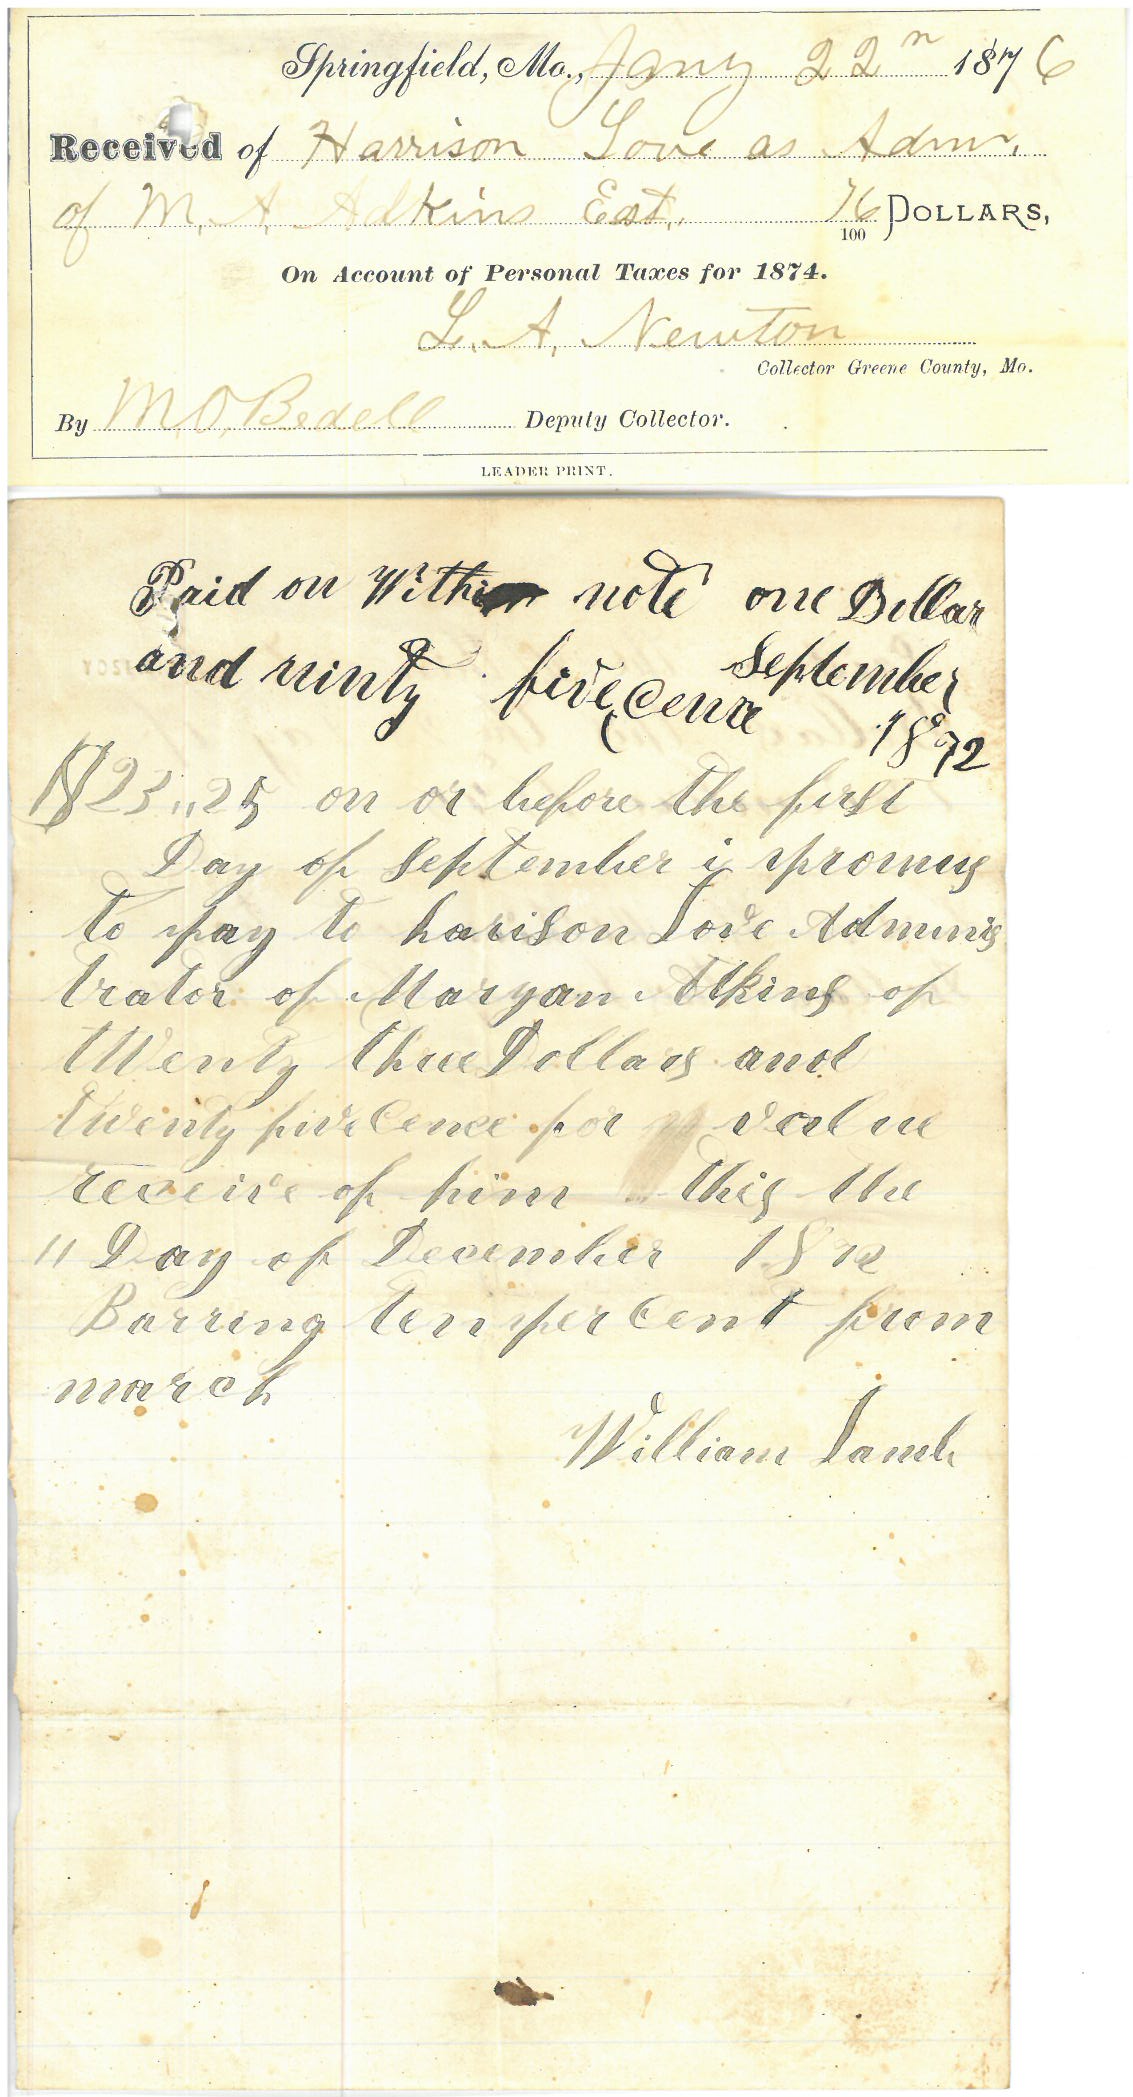 Springfield, Mo., Jany 22n 1876
Received of Harrison Love as Admr.
of M. A. Adkins Est. 76/100 DOLLARS,
On Account of Personal Taxes for 1874.
L. A. Newton
Collector Greene County, Mo.
By M. O. Bedell Deputy Collector.
LEADER PRINT.
Paid on Within note one Dollar
and ninty five cence September
1872
$23,,25 on or before the first
Day of September i promis
to pay to harison Love Adminis
trator of Maryan Atkins of
twenty three Dollars and
twenty five Cence for value
receive of him this the
11 Day of December 1872
Barring ten per Cent from
march
William Lamb